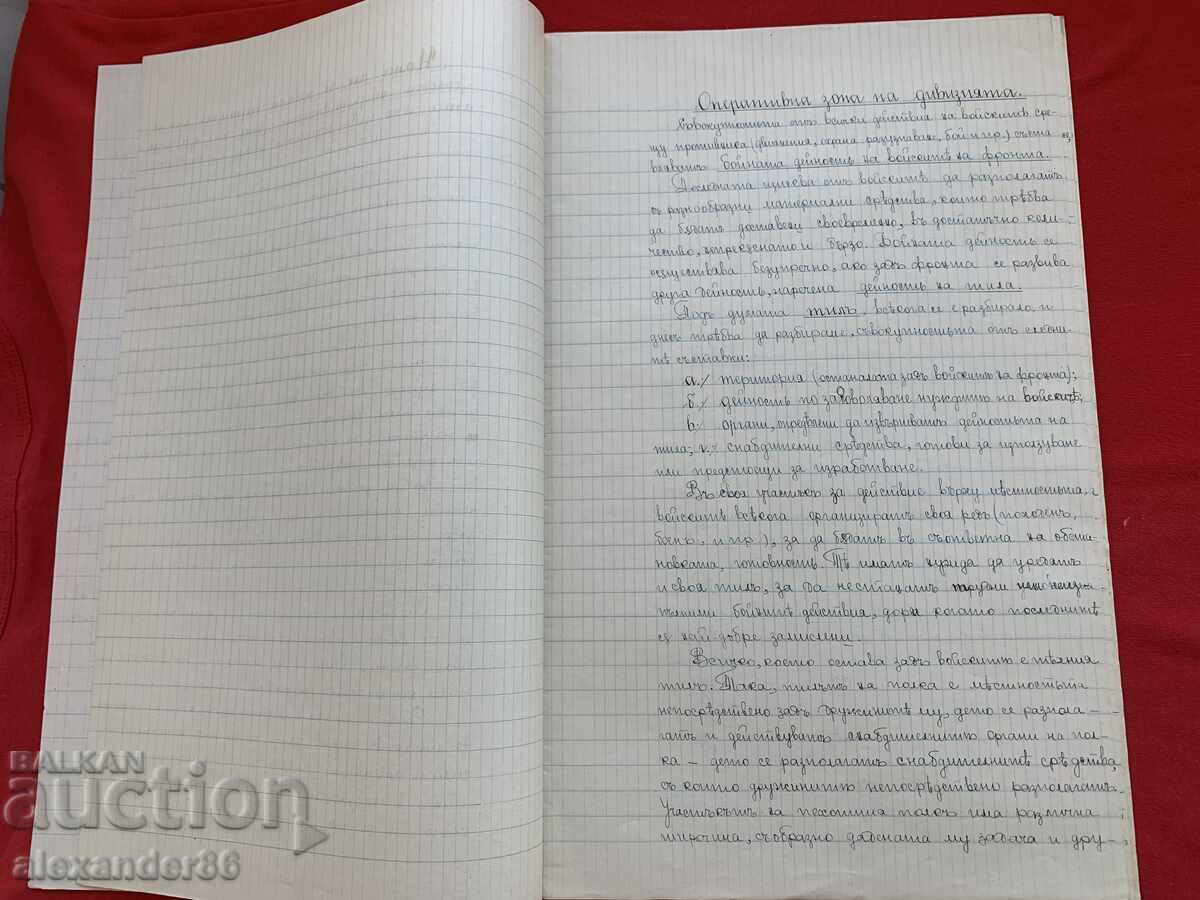 Оперативна зона на дивизията.
Съвокупностьта отъ всички действия на войскитѣ сре-
щу противника (движения, охрана разузнаване, бой и пр.) съста
вляватъ бойната дейность на войскитѣ на фронта.
Последната изисква отъ войскитѣ да разполагатъ
съ разнообразни материални срѣдства, които трѣбва
да бѫдатъ доставени своевременно, въ достатъчно коли-
чество, непрекѫснато и бързо. Бойната дейность се
осѫществява безупречно, ако задъ фронта се развива
друга дейность, наречена дейность на тила.
Подъ думата тилъ, всѣкога се е разбирало, и
днес трѣбва да разбираме, съвокупностьта отъ следни-
тѣ съставки:
а./ територия (останалата задъ войскитѣ на фронта);
б./ дейность по задоволяване нуждитѣ на войскитѣ;
в. органи, опредѣлени да извършватъ дейностьта на
тила; г. снабдителни срѣдства, готови за използуване
или предстоящи за изработване.
Въ своя участъкъ за действие върху мѣстностьта,
войскитѣ всѣкога организиратъ своя редъ (походенъ,
боенъ, и пр.), за да бѫдатъ въ съответна на обста-
новката, готовность. Тѣ иматъ нужда да уредятъ
и своя тилъ, за да не станатъ трудни
бойнитѣ действия, дори когато последнитѣ
сѫ най-добре замислени.
Всичко, което остава задъ войскитѣ е тѣхния
тилъ. Така, тилътъ на полка е мѣстностьта
непосрѣдствено задъ дружинитѣ му, дето се разпола-
гатъ и действуватъ снабдителнитѣ органи на пол-
ка – дето се разполагатъ снабдителнитѣ срѣдства,
съ които дружинитѣ непосрѣдствено разполагатъ.
Участъкътъ на пехотния полкъ има различна
широчина, съобразно дадената му задача и дру-
BALKAN
auction
alexander86